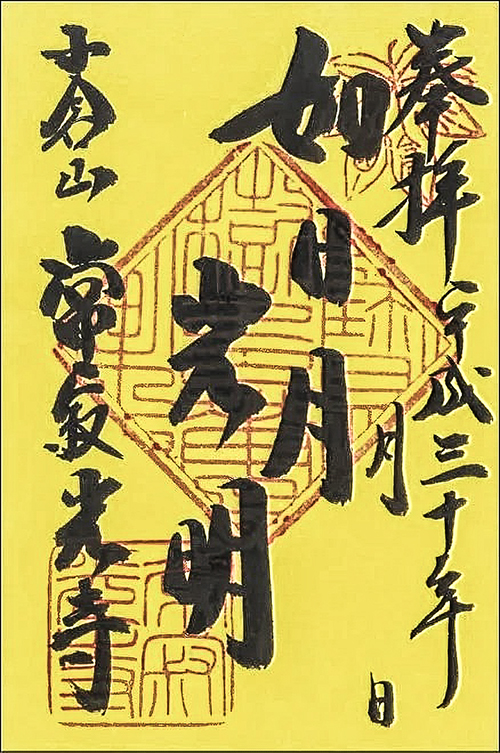 奉拝 平成三十年 月 日
如日月光明
小倉山 常寂光寺